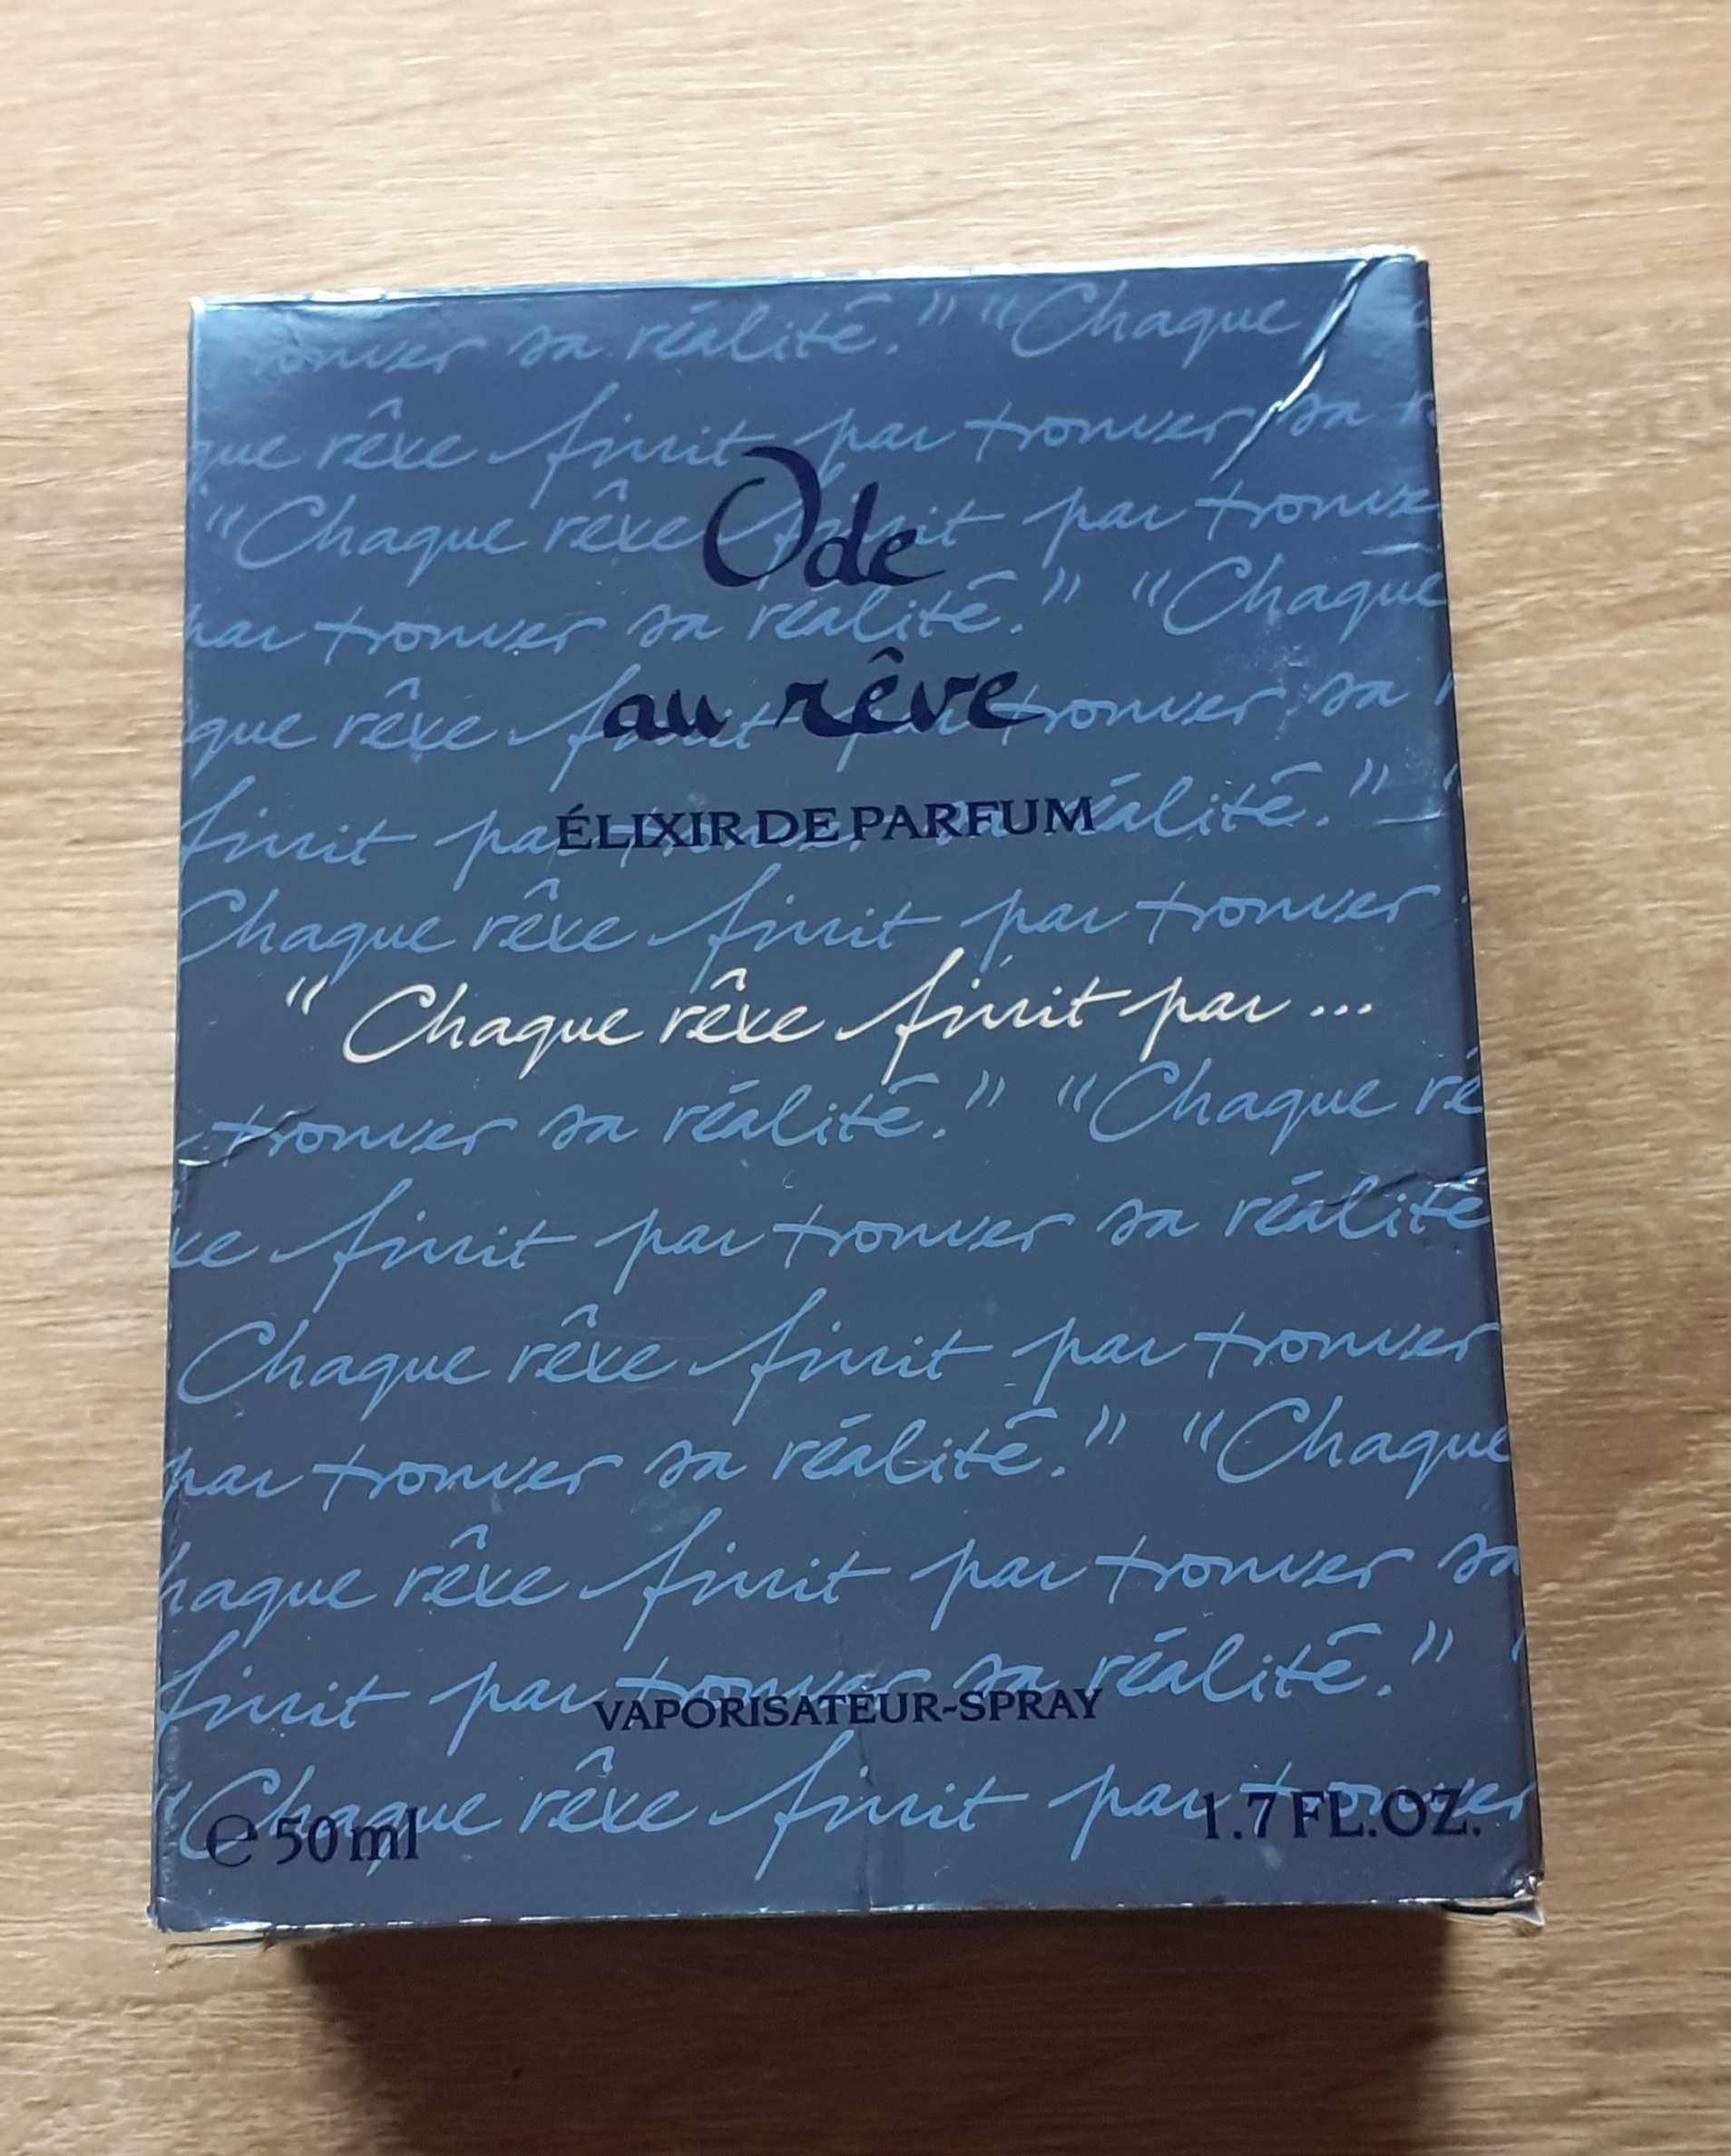 trouver sa réalité." "Chaque
que rêve finit par trouver sa r
Ode
"Chaque rêve finit par trouve
par trouver sa réalité." "Chaque
au rêve
que rêve finit par trouver sa r
finit par trouver sa réalité." "
ÉLIXIR DE PARFUM
Chaque rêve finit par trouver
"Chaque rêve finit par...
trouver sa réalité." "Chaque rê
ve finit par trouver sa réalité
Chaque rêve finit par trouver
par trouver sa réalité." "Chaque
haque rêve finit par trouver sa
finit par trouver sa réalité."
VAPORISATEUR-SPRAY
"Chaque rêve finit par trouver
e 50 ml 1.7 FL.OZ.